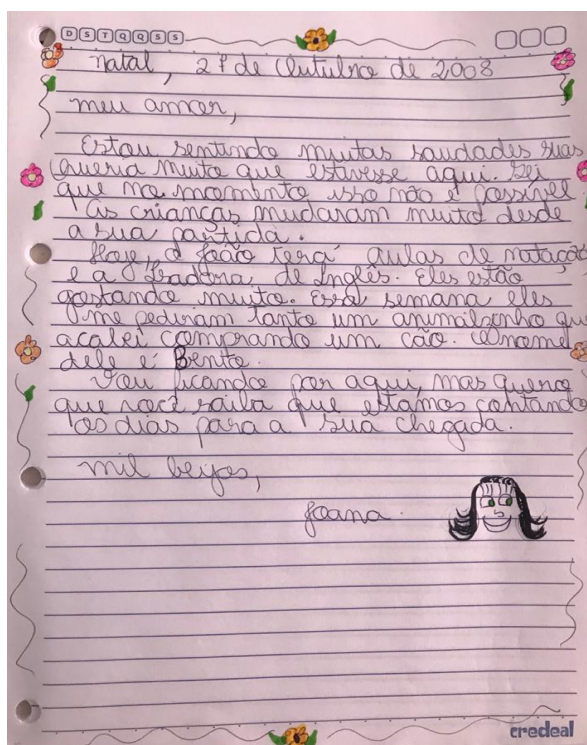 D S T Q Q S S
Natal, 27 de Outubro de 2008
meu amor,
Estou sentindo muitas saudades suas
Queria muito que estivesse aqui. Sei
que no momento isso não é possível
As crianças mudaram muito desde
a sua partida.
Hoje, o João terá aulas de natação
e a Isadora, de Inglês. Eles estão
gostando muito. Essa semana eles
me pediram tanto um animalzinho que
acabei comprando um cão. O nome
dele é Bento.
Vou ficando por aqui, mas quero
que você saiba que estamos contando
os dias para a sua chegada.
mil beijos,
Joana.
credeal